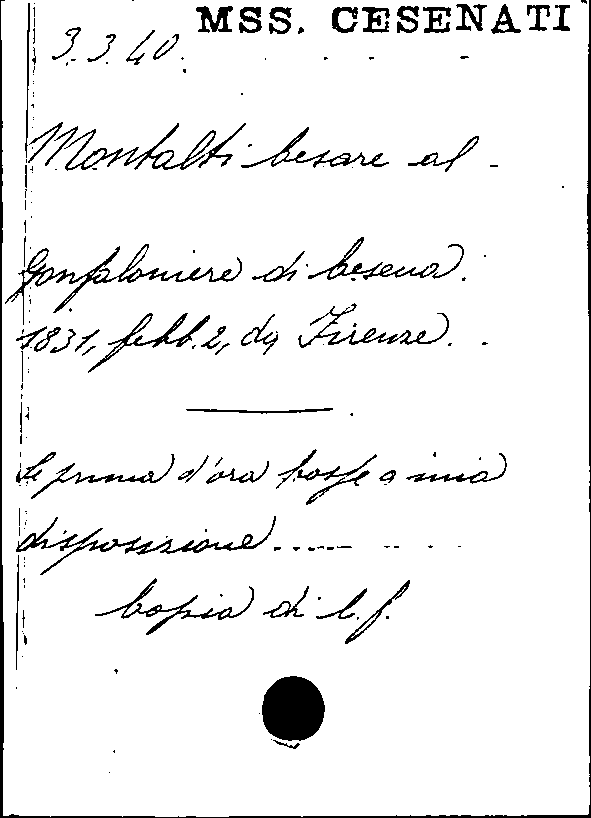 MSS. CESENATI
3.3.40.
Montalti Cesare al
Gonfaloniere di Cesena.
1831, febb. 2, da Firenze.
Se prima d'ora fosse a mia
disposizione......
Copia di C. f.